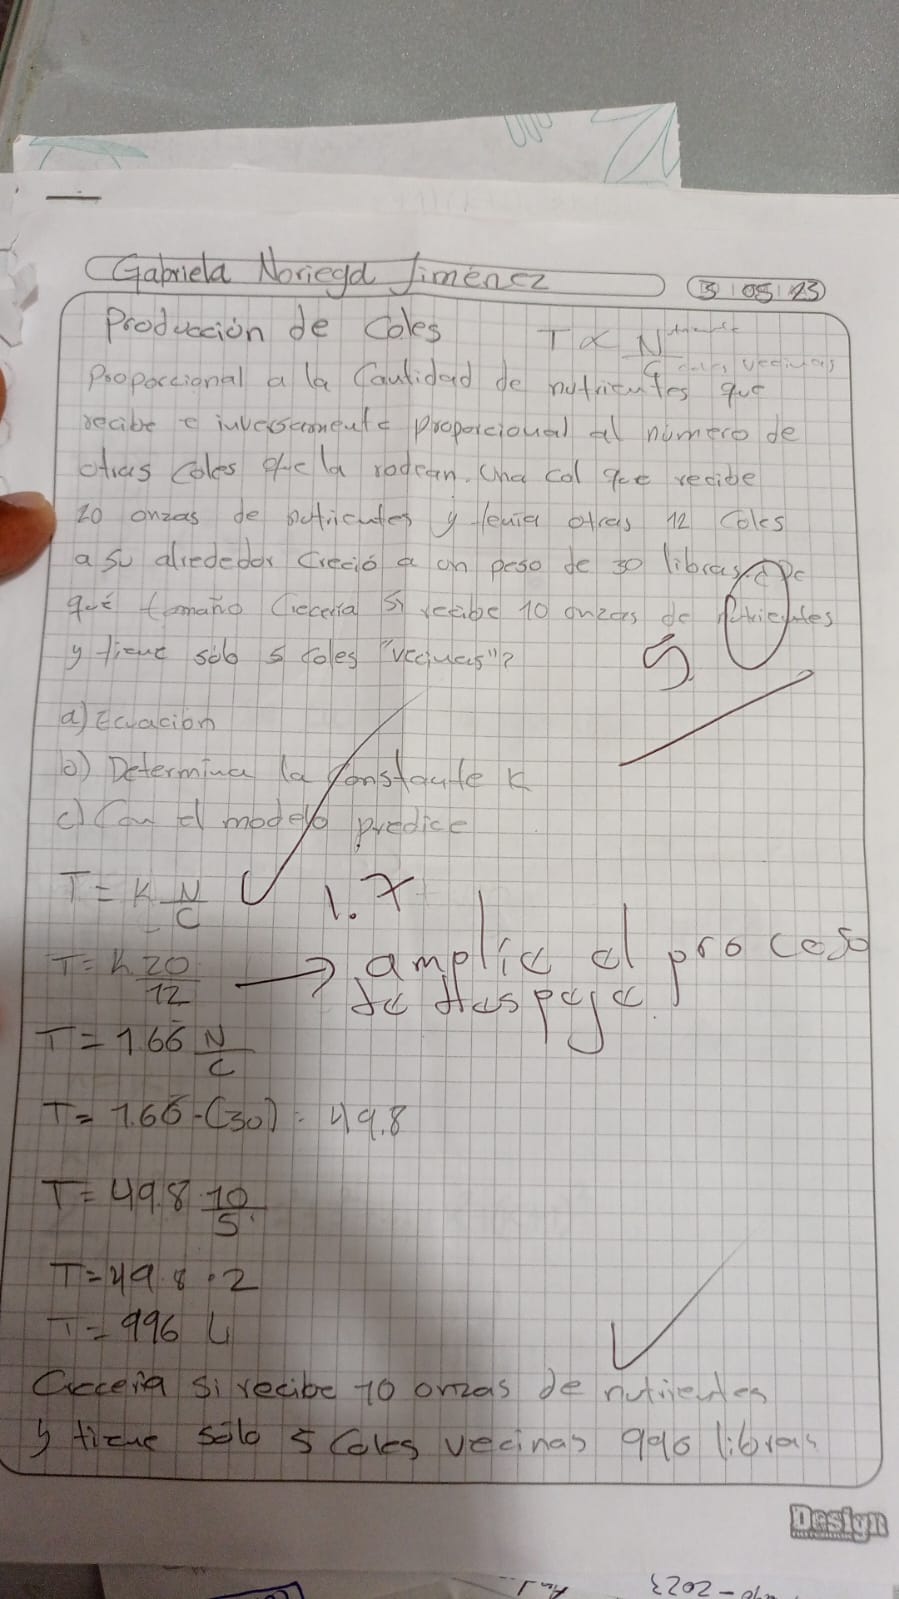 Gabriela Noriega Jiménez
3 | 05 | 23
Producción de Coles T ∝ N
C coles vecinas
Proporcional a la Cantidad de nutrientes que
recibe e inversamente proporcional al número de
otras Coles que la rodean. Una col que recibe
20 onzas de nutrientes y tenía otras 12 Coles
a su alrededor Creció a un peso de 30 libras. ¿De
qué tamaño Crecería Si recibe 10 onzas de nutrientes
y tiene sólo 5 Coles "vecinas"?
5.0
a) Ecuación
b) Determina la Constante K
c) Con el modelo predice
T = K N/C 1.7
T = K 20/12 → amplía el proceso
de despeje.
T = 1.66 N/C
T = 1.66 · (30) = 49.8
T = 49.8 · 10/5
T = 49.8 · 2
T = 996
Crecería Si recibe 10 onzas de nutrientes
y tiene sólo 5 Coles vecinas 996 libras
Design
- 2023